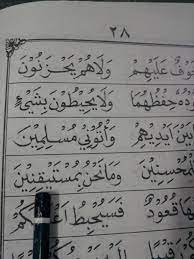 ٢٨
خَوْفٌ عَلَيْهِمْ وَلَاهُمْ يَحْزَنُونَ
حِفْظُهُمَا وَلَا يُحِيطُونَ بِشَيْءٍ
بَيْنَ اَيْدِيهِمْ وَأْتُونِي مُسْلِمِينَ
الْمُحْسِنِينَ وَمَا نَحْنُ بِمُسْتَيْقِنِينَ
قُعُودٌ فَسَيُحْبِطُ